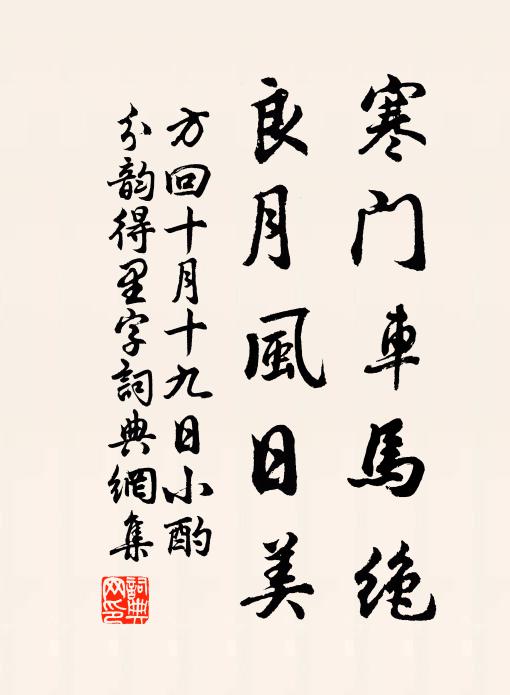 寒门車馬絶
良月風日美
方回十月十九日小酌
分韵得里字詞典網集
詞典网印